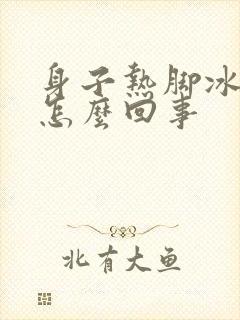 身子热脚冰
怎麼回事
北有大鱼